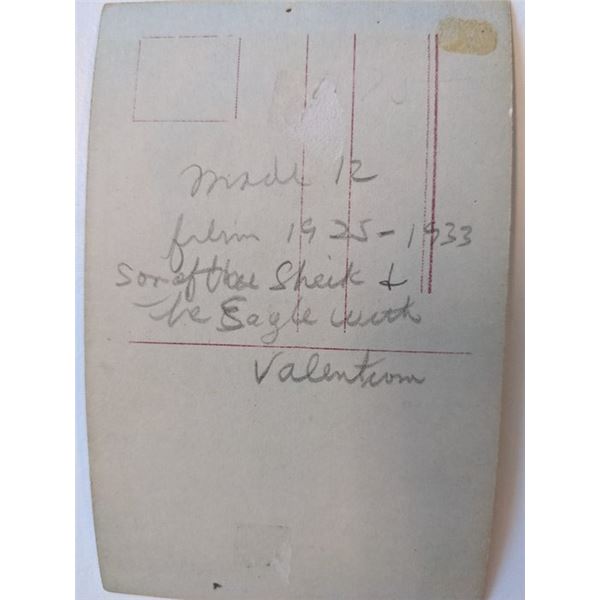 Made 12
film 1925-1933
Son of the Sheik &
The Eagle with
Valentino